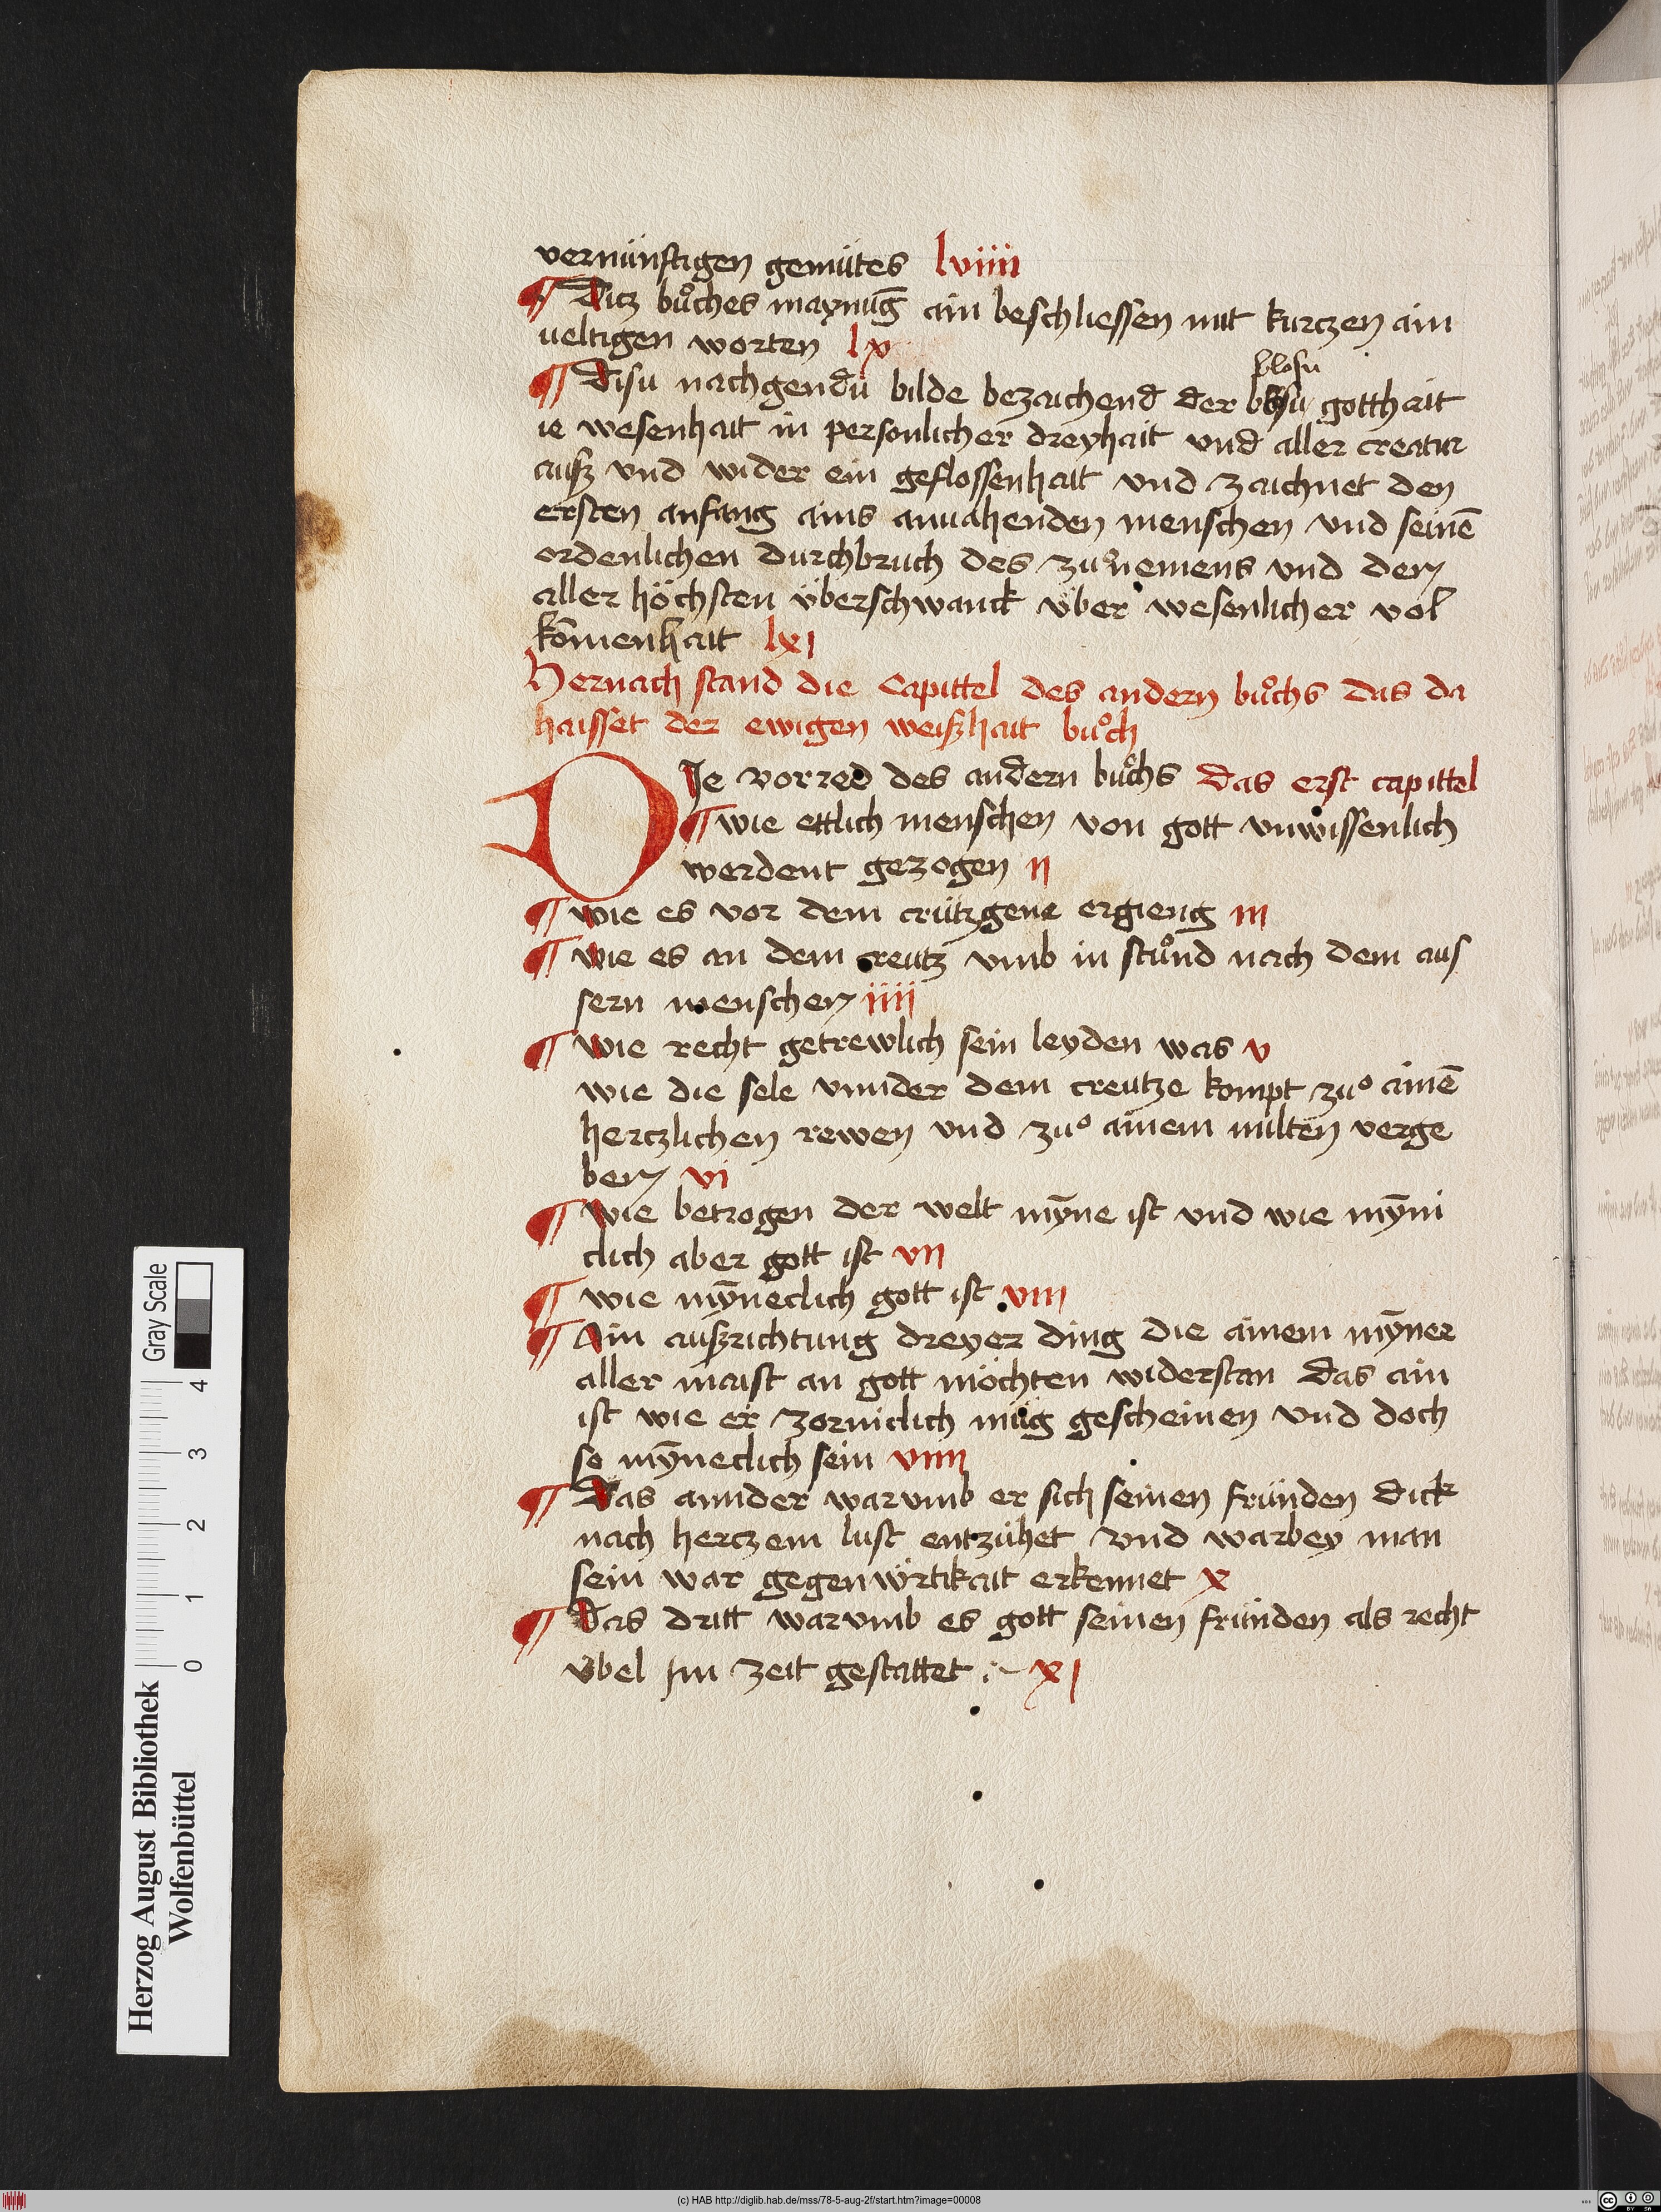 vernünftigen gemütes lviiii
¶ Ditz bůches maynūg ain beschliessen mit kurczen ain
ueltigen worten lx
blosu
¶ Disu nachgendu bilde bezaichend der gotthait
ie wesenhait in personlicher dreyhait vnd aller creatur
ausz vnd wider ein geflossenhait vnd zaichnet den
ersten anfang ains anuahenden menschen vnd seinē
ordenlichen durchbruch des zuͦnemens vnd den
aller höchsten überschwanck über wesenlicher vol
kōmenhait lxi
Hernach stand die Capittel des andern bůchs das da
haisset der ewigen weiszhait bůch
DIe vorred des andern bůchs das erst capittel
¶ wie ettlich menschen von gott vnwissenlich
werdent gezogen ii
¶ wie es vor dem crützgene ergieng iii
¶ wie es an dem creutz vmb in stůnd nach dem aus
sern menschen iiii
¶ wie recht getrewlich sein leyden was v
wie die sele vnnder dem creutze kompt zuͦ ainē
herczlichen rewen vnd zuͦ ainem milten verge
ben vi
¶ wie betrogen der welt mȳne ist vnd wie mȳni
clich aber gott ist vii
¶ wie mȳneclich gott ist viii
¶ Ain auszrichtung dreyer ding die ainem mȳner
aller maist an gott möchten widerstan das ain
ist wie er zorniclich müg gescheinen vnd doch
so mȳneclich sein viiii
¶ Das annder warvmb er sich seinen fründen dick
nach herczem lust entzühet vnd warbey man
sein war gegenwörtikait erkennet x
¶ Das dritt warvmb es gott seinen fründen als recht
übel Im zeit gestattet xi
Herzog August Bibliothek
Wolfenbüttel
0 1 2 3 4
Gray Scale
(c) HAB http://diglib.hab.de/mss/78-5-aug-2f/start.htm?image=00008